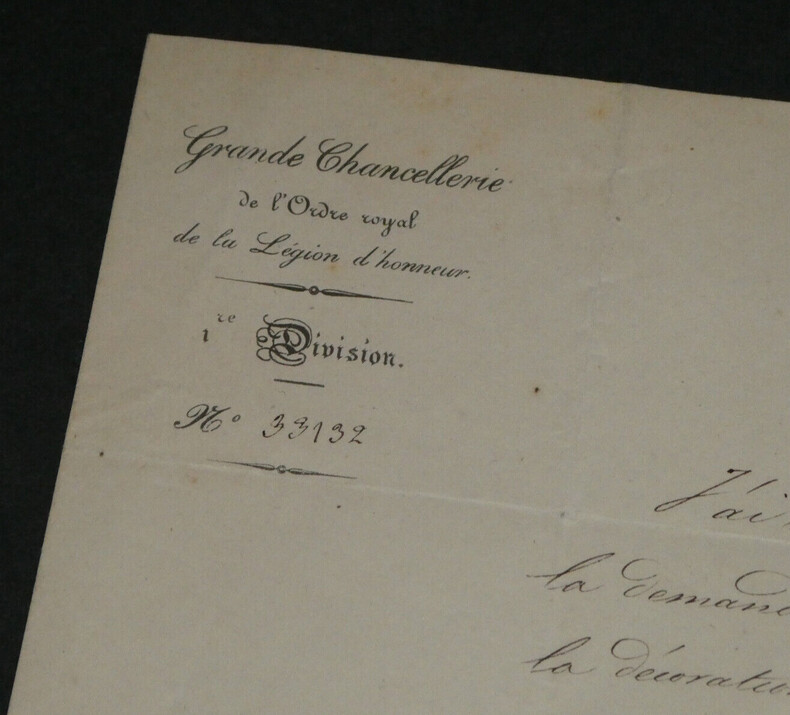 Grande Chancellerie
de l'Ordre royal
de la Légion d'honneur.
1re Division.
No 33132
J'ai
la
la